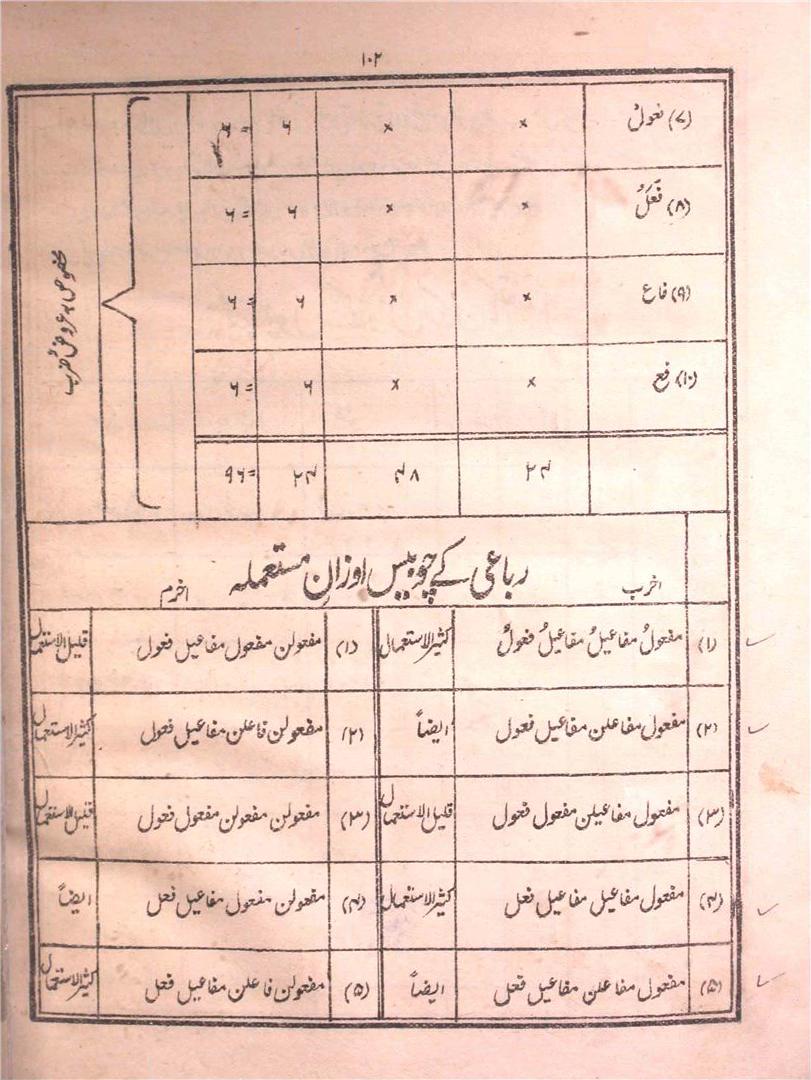 ۱۰۲
(۷) فعولُ × × ۶ =۶
(۸) فَعَلُ × × ۶ =۶
(۹) فاع × × ۶ =۶
(۱۰) فع × × ۶ =۶
۲۴ ۴۸ ۲۴ =۹۶
مخصوص بہ عروض و ضرب
رباعی کے چوبیس اوزانِ مستعملہ
اخرب اخرم
(۱) مفعولُ مفاعیلُ مفاعیلُ فعولُ کثیرالاستعمال (۱) مفعولن مفعول مفاعیل فعول قلیل الاستعمال
(۲) مفعول مفاعلن مفاعیل فعول ایضاً (۲) مفعولن فاعلن مفاعیل فعول کثیرالاستعمال
(۳) مفعول مفاعیلن مفعول فعول قلیل الاستعمال (۳) مفعولن مفعولن مفعول فعول قلیل الاستعمال
(۴) مفعول مفاعیل مفاعیل فعل کثیرالاستعمال (۴) مفعولن مفعول مفاعیل فعل ایضاً
(۵) مفعول مفاعلن مفاعیل فعل ایضاً (۵) مفعولن فاعلن مفاعیل فعل کثیرالاستعمال